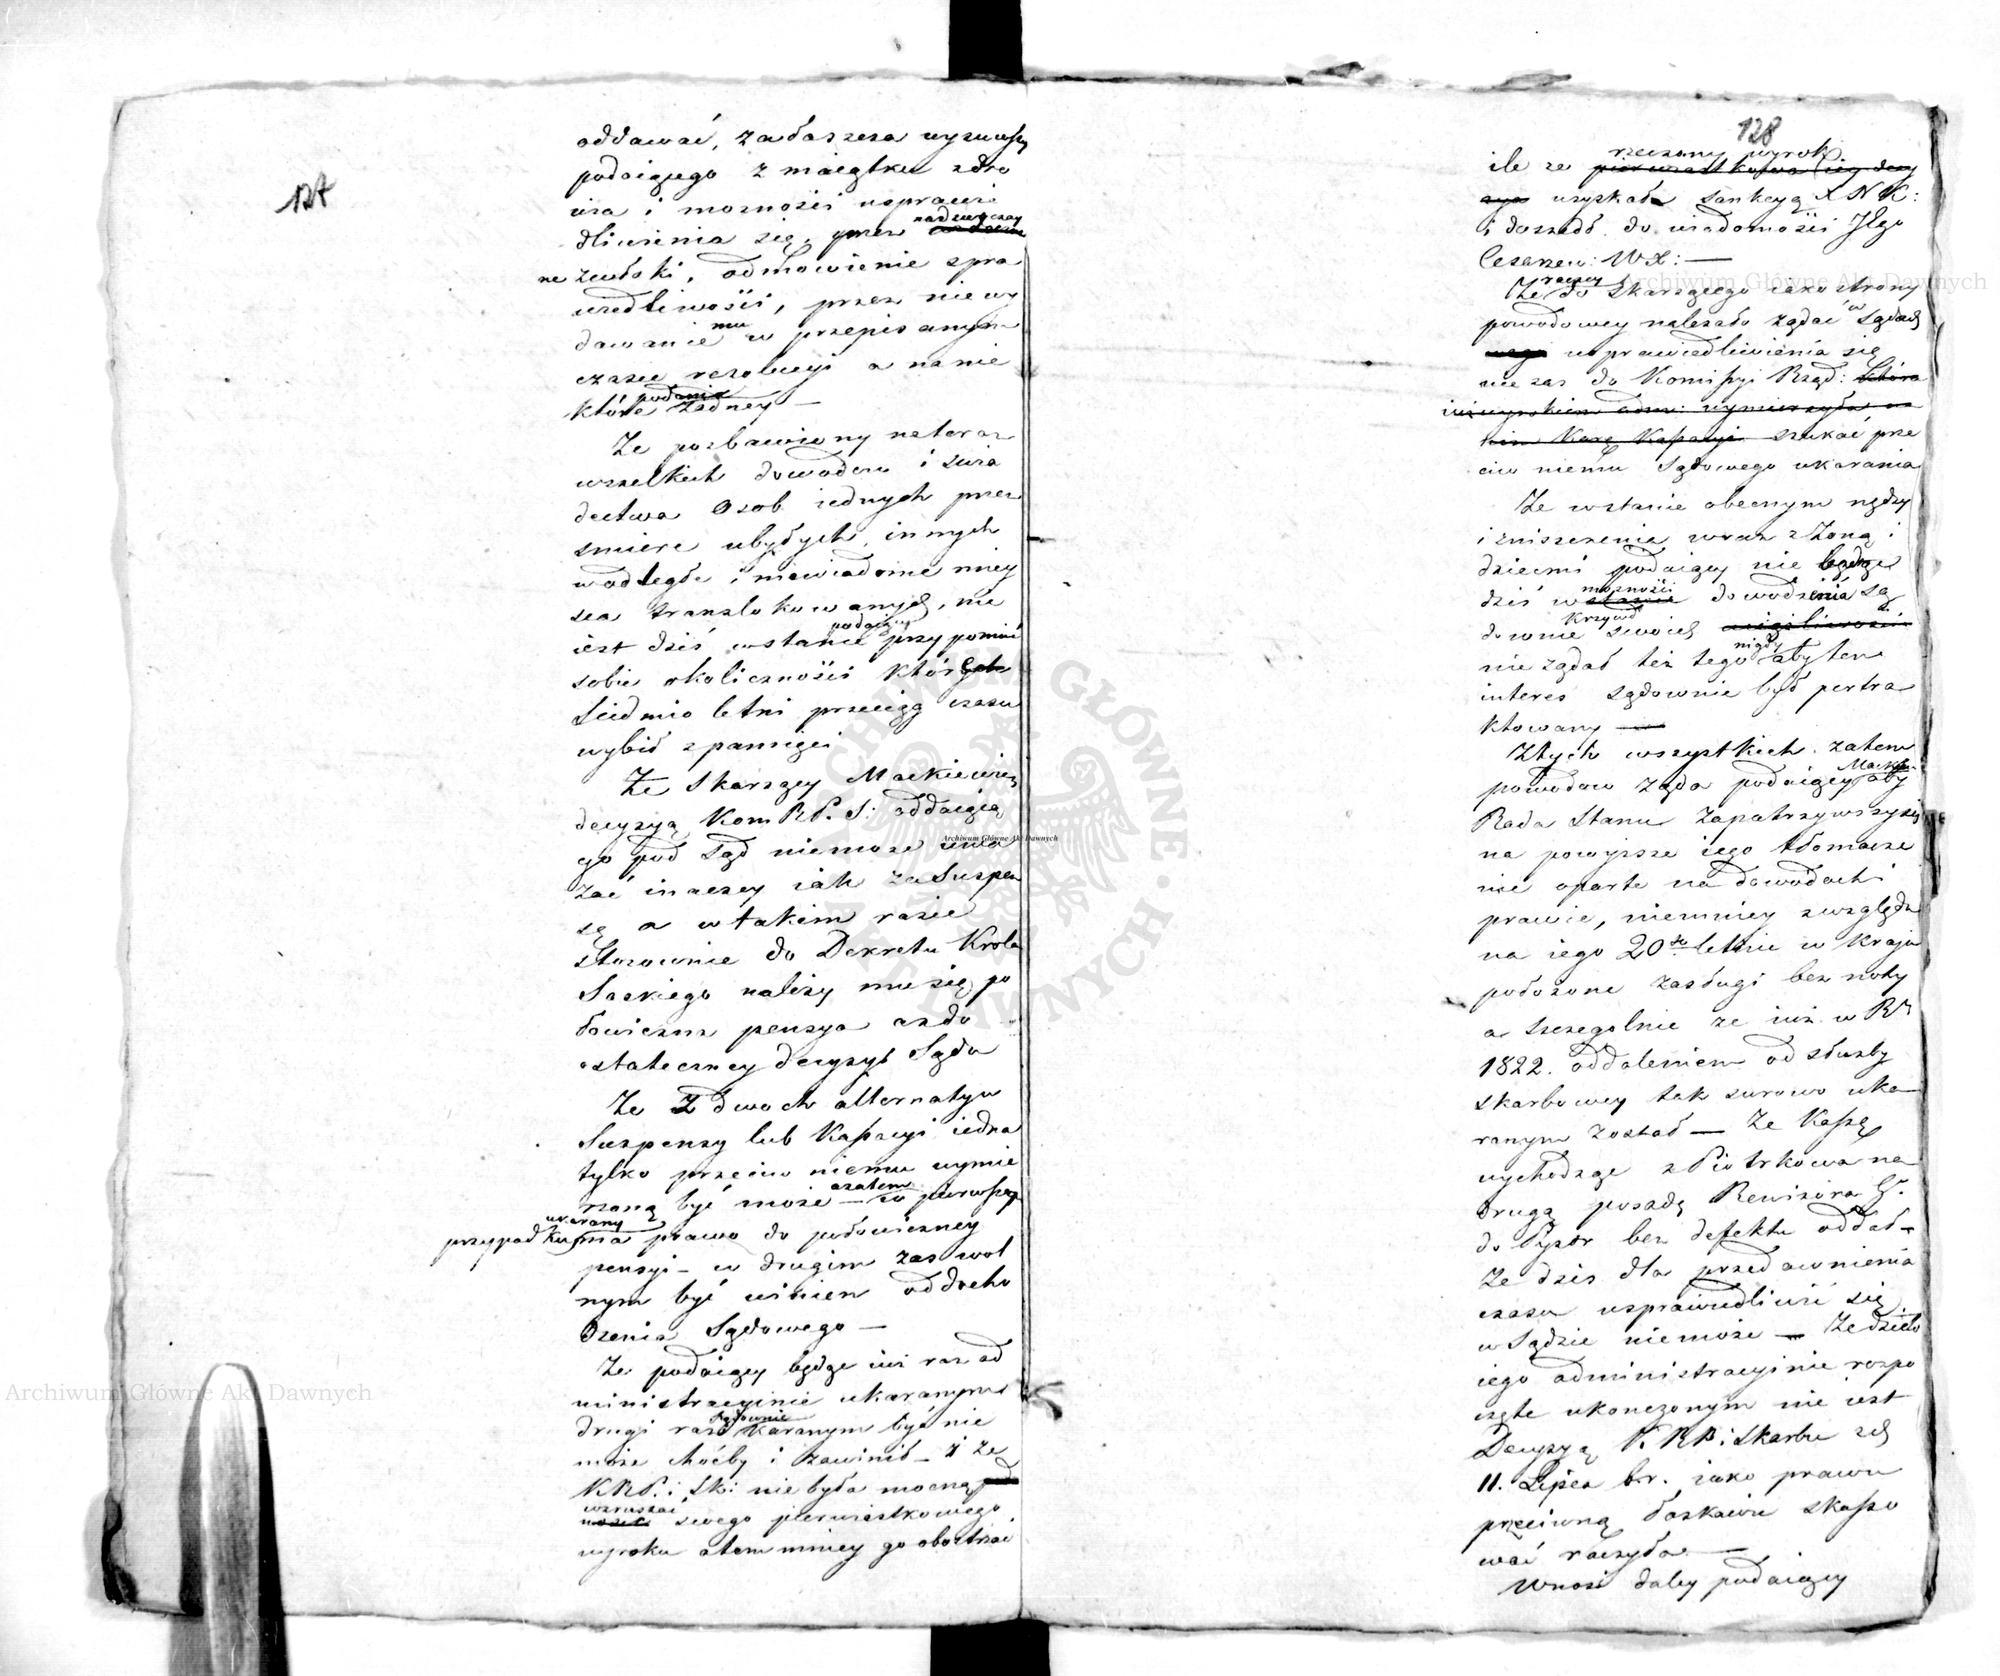 127
oddawać, zwłaszcza wyzuwszy
podaiącego z maiątku zdro
wia i możności usprawie
dliwienia się, przez nadzwyczay
ne zwłoki, odmowienie spra
wiedliwości, przez nie wy
dawanie mu w przepisanym
czasie rezolucyi a na nie
które podania żadney —
Że pozbawiony na teraz
wszelkich dowodów i świa
dectwa Osob iednych przez
śmierć ubyłych, innych
w odległe i niewiadome miey
sca translokowanych, nie
iest dziś w stanie podaiący przypomnić
sobie okoliczności których
Siedmio letni przeciąg czasu
wybił z pamięci
Że Skarżący Mackiewicz
decyzyą Kom R P. S: oddaiącą
go pod Sąd niemoże uwa
żać inaczey iak za Suspen
są a w takim razie
Stosownie do Dekretu Króla
Saskiego należy mu się po
łowiczna pensya aż do
ostateczney decyzyi Sądu
Że Z dwoch alternatyw
Suspensy lub Kassacyi iedna
tylko przeciw niemu wymie
rzoną być może — a zatem w pierwszym
przypadku ukarany ma prawo do połowiczney
pensyi — w drugim zaś wol
nym być winien od docho
dzenia Sądowego —
Że podaiący będąc iuż raz ad
ministracyinie ukaranym
drugi raz Sądownie karanym być nie
może choćby i zawinił — i że
K R P. i Sk: nie była mocną
wzruszać swego pierwiastkowego
wyroku a tem mniey go obostrzać
128
ile że rzeczony wyrok
uzyskał Sankcyą X N K:
i doszedł do wiadomości JEgo
Cesarzew: W X: —
Że raczey do Skarżącego iako strony
powodowey należało żądać w Sądach
usprawiedliwienia się
nie zaś do Komissyi Rząd: która
iuż wyrokiem adm: wymierzyła na
nim Karę Kassacyi szukać prze
ciw niemu Sądowego ukarania
Że w stanie obecnym nędzy
i zniszczenia wraz z Żoną i
dziećmi podaiący nie będąc
dziś w możności dowodzenia Są
downie Krzywd swoich
nie żądał też tego nigdy aby ten
interes Sądownie był pertra
ktowany —
Z tych wszystkich zatem
powodow żąda podaiący Mackie: aby
Rada Stanu zapatrzywszy się
na powyższe iego tłomacze
nie oparte na dowodach i
prawie, niemniey zwzględu
na iego 20sto letnie w Kraju
położone zasługi bez noty
a szczególnie że iuż w Rr
1822. oddaleniem od służby
skarbowey tak surowo uka
ranym został — Że Kassę
wychodząc z Piotrkowa na
drugą posadę Rewizora G.
do Pyzdr bez defektu oddał —
Że dziś dla przedawnienia
czasu usprawiedliwić się
w Sądzie niemoże — Że dzieło
iego administracyinie rozpo
częte ukonczonym nie iest
Decyzyą K. R P. i Skarbu z d
11. Lipca b. r. iako prawu
przeciwną łaskawie skasso
wać raczyła —
Wnosi daley podaiący